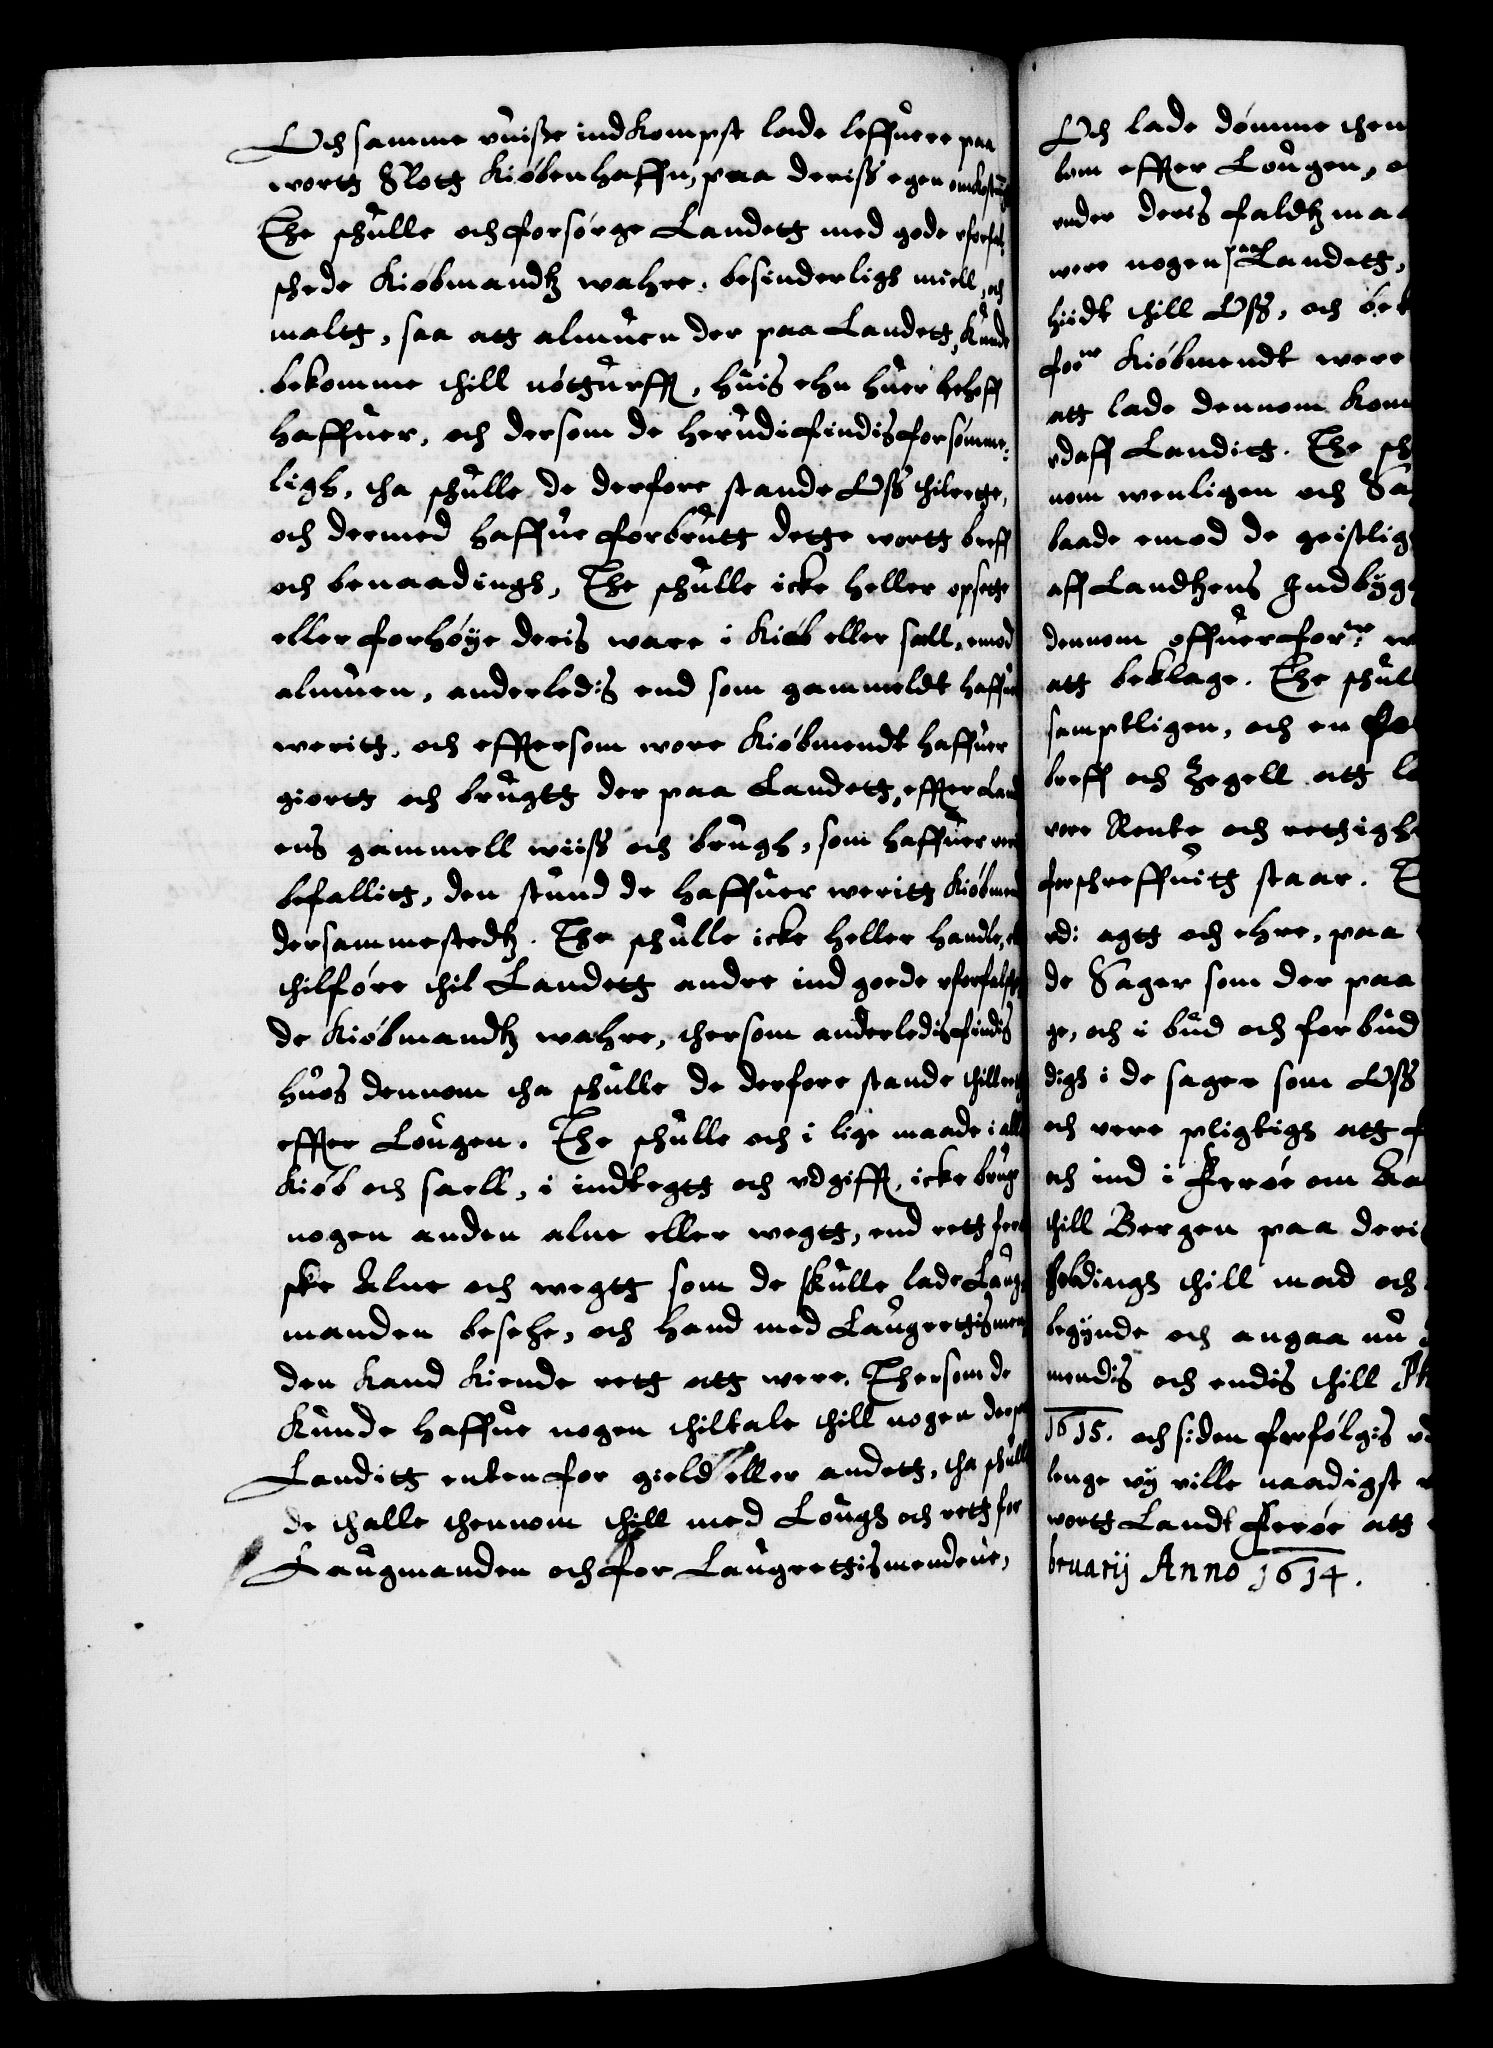 Och samme vuisse indkompst lade leffuere paa
wortt Slott Kiøbenhaffn, paa deriss egen omkostni
The schulle och forsørge Landett med gode vforfal
schede Kiøbmandtz wahre, besinderligh miell, och
maltt, saa att almuen der paa Landett, kunde
bekomme thill nøtturfft, huis ehn huer behoff
haffuer, och dersom de herudi findis forsømme-
ligh, tha schulle de derfore stande Oss thilrette,
och dermed haffue forbrutt dette wortt breff
och benaadingh, The schulle icke heller opsette
eller forhøye deris ware i Kiøb eller sall, emod
almuen, anderledis end som gammeldt haffue
weritt, och effttersom wore Kiøbmendt haffuer
giortt och brugtt der paa Landett, effter Land
ens gammell wiiss och brugh, som haffuer veri
befallitt, den stund de haffuer weritt Kiøbmend
dersammestedtz. The schulle icke heller handle, el
thilføre thil Landett andre ind goede vforfalske
de Kiøbmandtz wahre, thersom anderledis findis
huos dennom tha schulle de derfore stande thillrett
effter Lougen. The schulle och i lige maade i alle
Kiøb och saell, i indtegtt och vdgifft, icke brug
nogen anden alne eller wegtt, end rett fer
ske Alne och wegtt som de skulle lade Laug
manden besehe, och hand med Laugrettismen
den kand kiende rett att were. Thersom de
kunde haffue nogen thiltale thill nogen der paa
Landitt enten for gield eller andett, tha schulle
de thalle thennom thill med Lough och rett for
Laugmanden och for Laugrettismendene,
Och lade dømme then
lom effter Lougen, o
vnder deris faldtz maa
were nogen paa Landett,
hiidt thill Oss, och bek
forne Kiøbmendt were
att lade dennom kom
vdaff Landitt. The sch
nom wenligen och Sa
baade emod de geistlig
aff Landtzens Indbygg
dennom offuer forne w
att beklage. The schull
samptligen, och en for
breff och Zegell att l
vore Rente och rettighe
forschreffuitt staar. T
vdi agtt och ehre, paa
de Sager som der paa
ge, och i bud och forbud
digh i de sager som Oss
och vere pligtigh att f
och ind i Ferøe om Aa
thill Bergen paa deri
holdingh thill mad och
begynde och angaa nu
mendis och endis thill Ph
1615. och siden forfølgis vd
lenge vy ville naadigst
wortt Landt Ferøe att
bruarij Anno 1614.